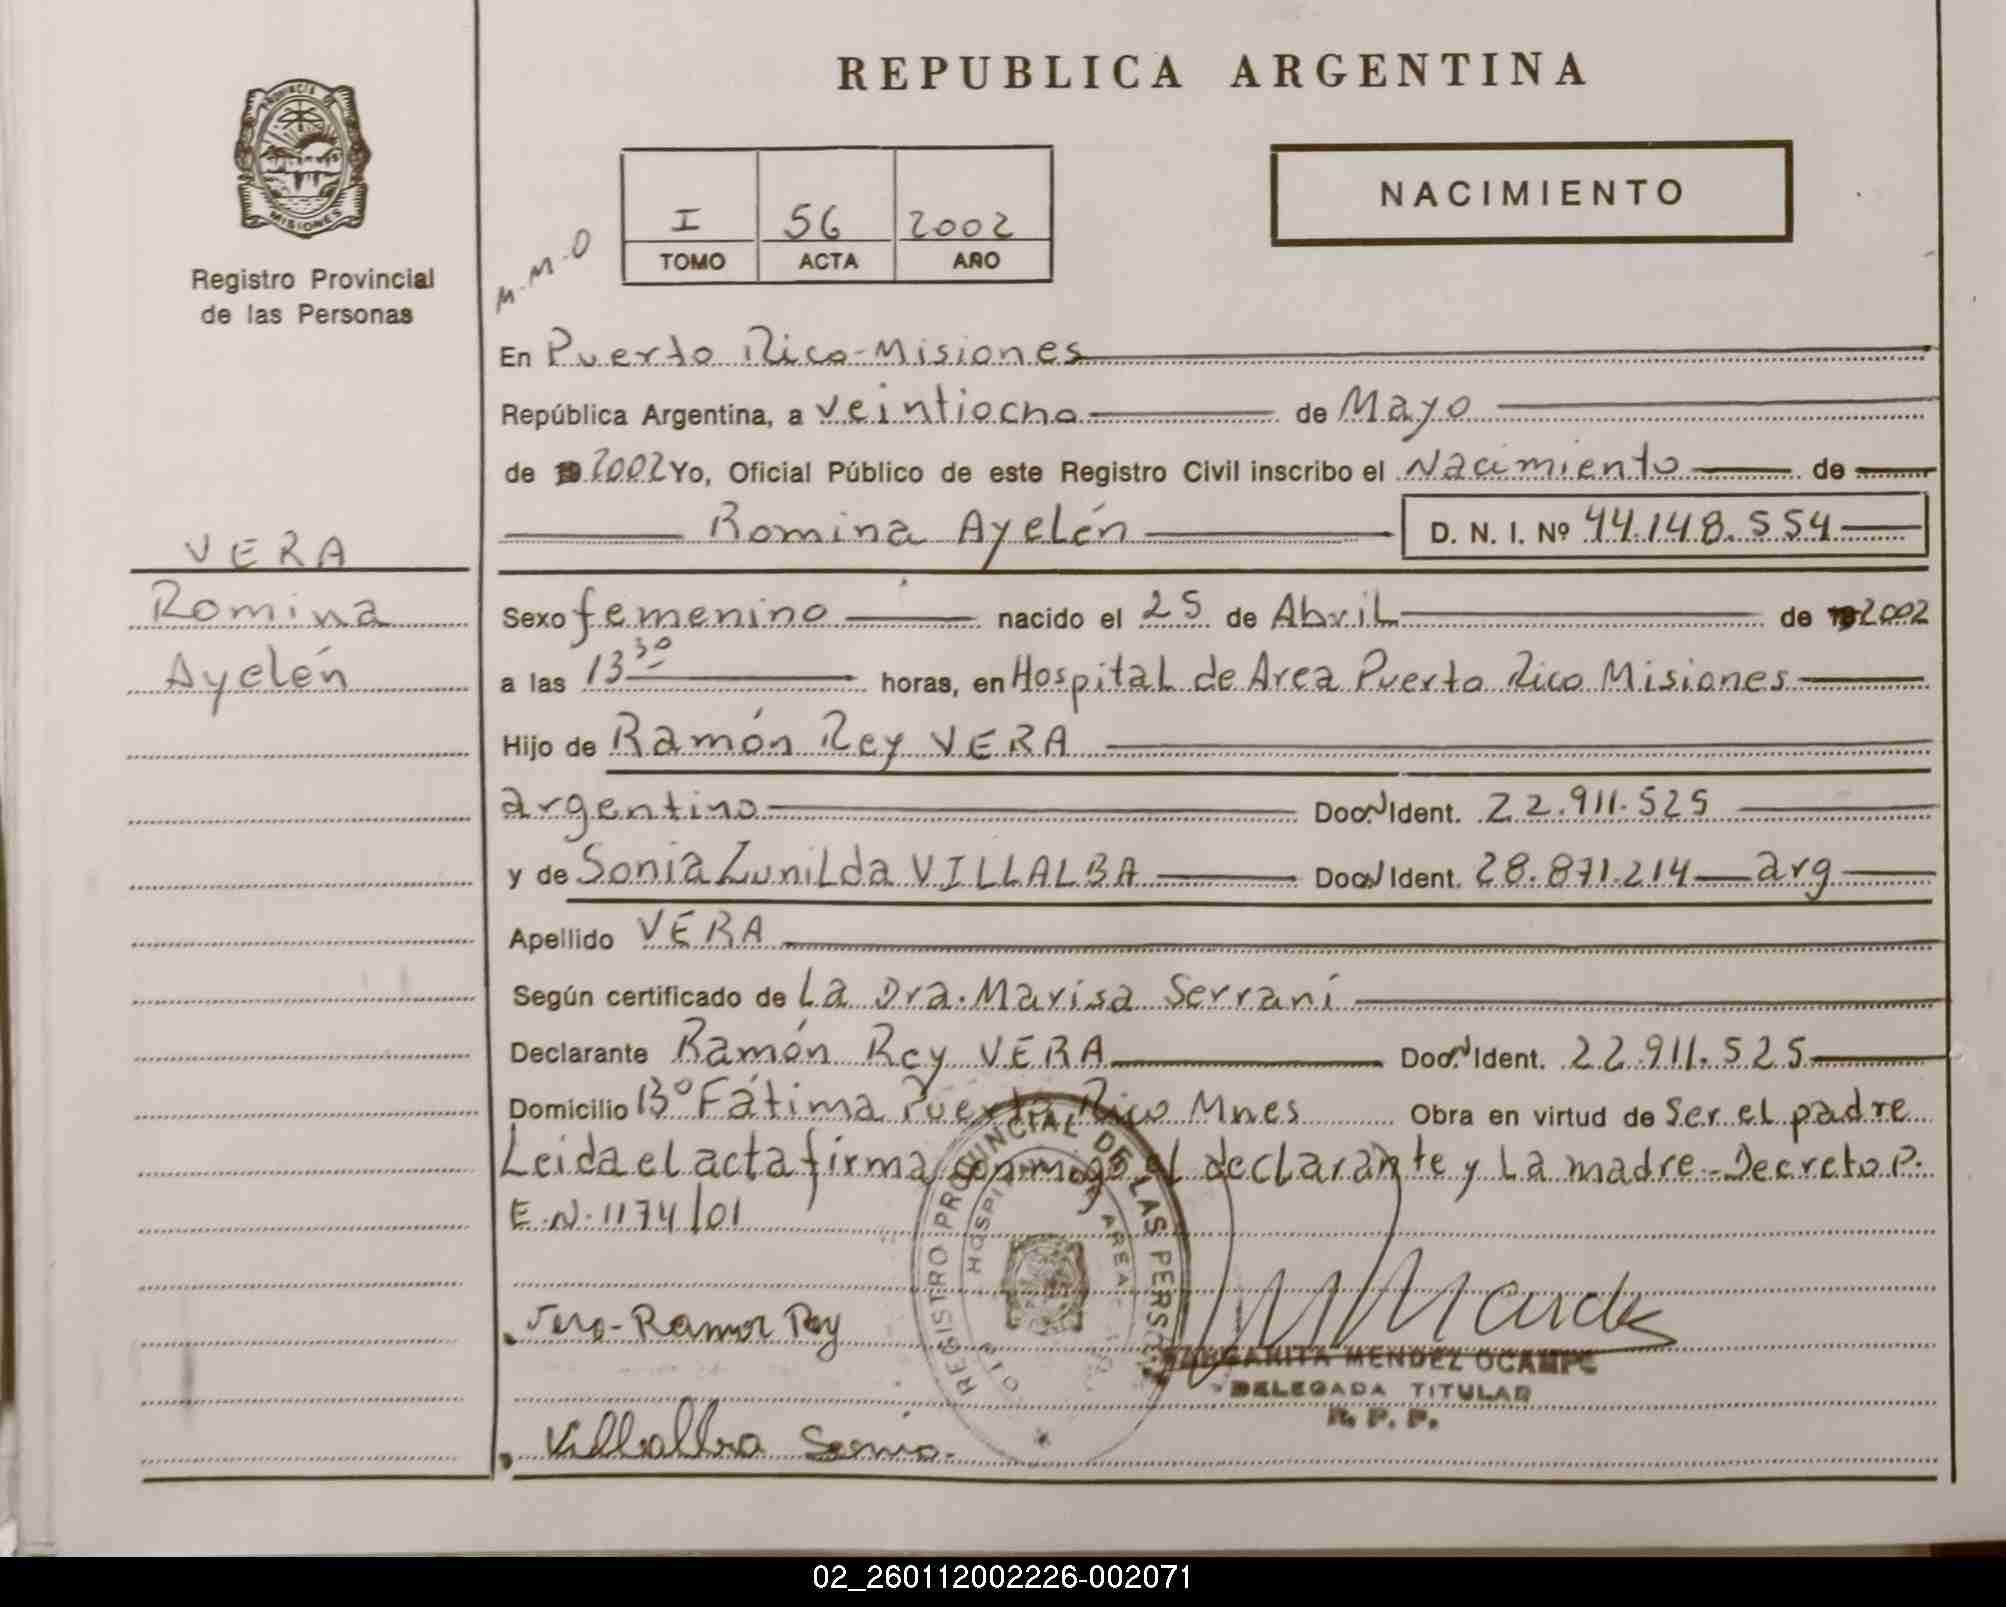 REPUBLICA ARGENTINA
PROVINCIA DE
MISIONES
Registro Provincial
de las Personas
NACIMIENTO
I 56 2002
TOMO ACTA AÑO
M.M.O
En Puerto Rico-Misiones
República Argentina, a veintiocho de Mayo
de 19 2002 Yo, Oficial Público de este Registro Civil inscribo el Nacimiento de
Romina Ayelén D. N. I. Nº 44.148.554
VERA
Romina
Ayelén
Sexo femenino nacido el 25 de Abril de 19 2002
a las 13 30 horas, en Hospital de Area Puerto Rico Misiones
Hijo de Ramón Rey VERA
argentino Doc. Ident. 22.911.525
y de Sonia Zunilda VILLALBA Doc. Ident. 28.871.214 arg
Apellido VERA
Según certificado de La Dra. Marisa Serrani
Declarante Ramón Rey VERA Doc. Ident. 22.911.525
Domicilio Bº Fátima Puerto Rico Mnes Obra en virtud de Ser el padre
Leida el acta firma conmigo el declarante y La madre-Decreto P.
E.N. 1174/01
REGISTRO PROVINCIAL DE LAS PERS
HOSPI AREA
Ramon Rey
MARGARITA MENDEZ OCAMPO
DELEGADA TITULAR
R. P. P.
Villalba Sonia.
02_260112002226-002071